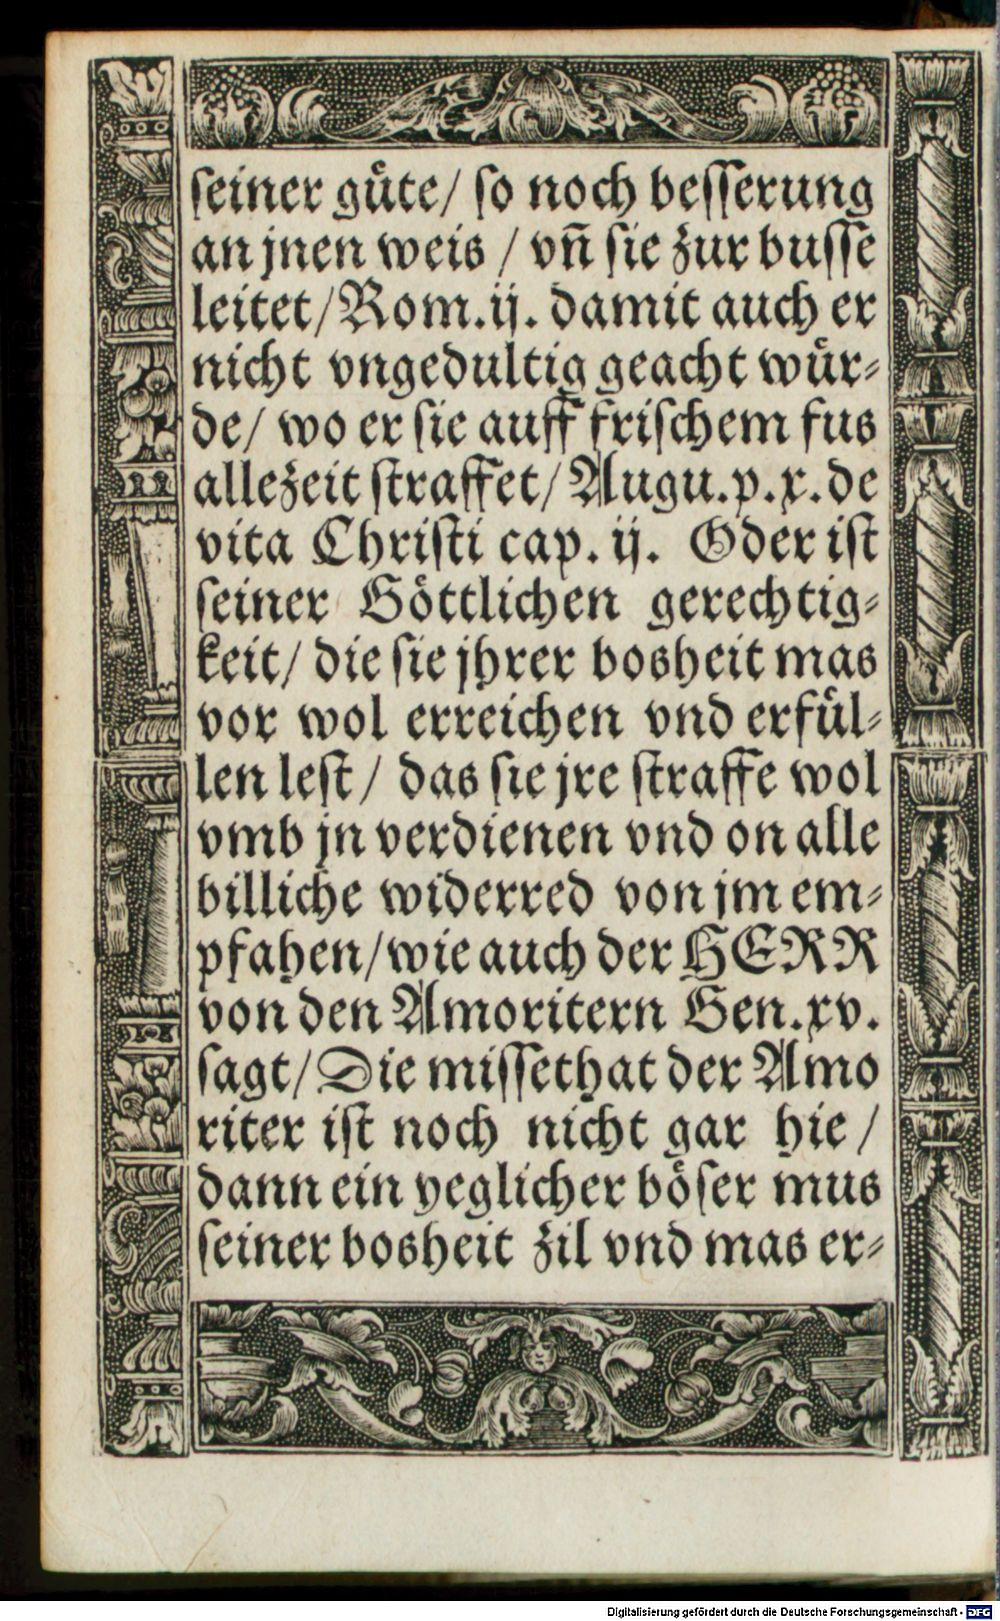 seiner guͤte/ so noch besserung
an jnen weis / vñ sie zur busse
leitet/Rom.ij. damit auch er
nicht vngedultig geacht wuͤr-
de/ wo er sie auff frischem fus
allezeit straffet/Augu.p.x.de
vita Christi cap. ij. Oder ist
seiner Göttlichen gerechtig-
keit/ die sie jhrer bosheit mas
vor wol erreichen vnd erfuͤl-
len lest/ das sie jre straffe wol
vmb jn verdienen vnd on alle
billiche widerred von jm em-
pfahen/wie auch der HERR
von den Amoritern Gen.xv.
sagt/Die missethat der Amo
riter ist noch nicht gar hie/
dann ein yeglicher böser mus
seiner bosheit zil vnd mas er-
Digitalisierung gefördert durch die Deutsche Forschungsgemeinschaft - DFG